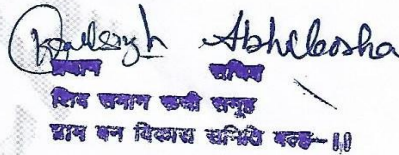 Abhilasha
प्रधान सचिव
शिव समान रूची समूह
ग्राम वन विकास समिति